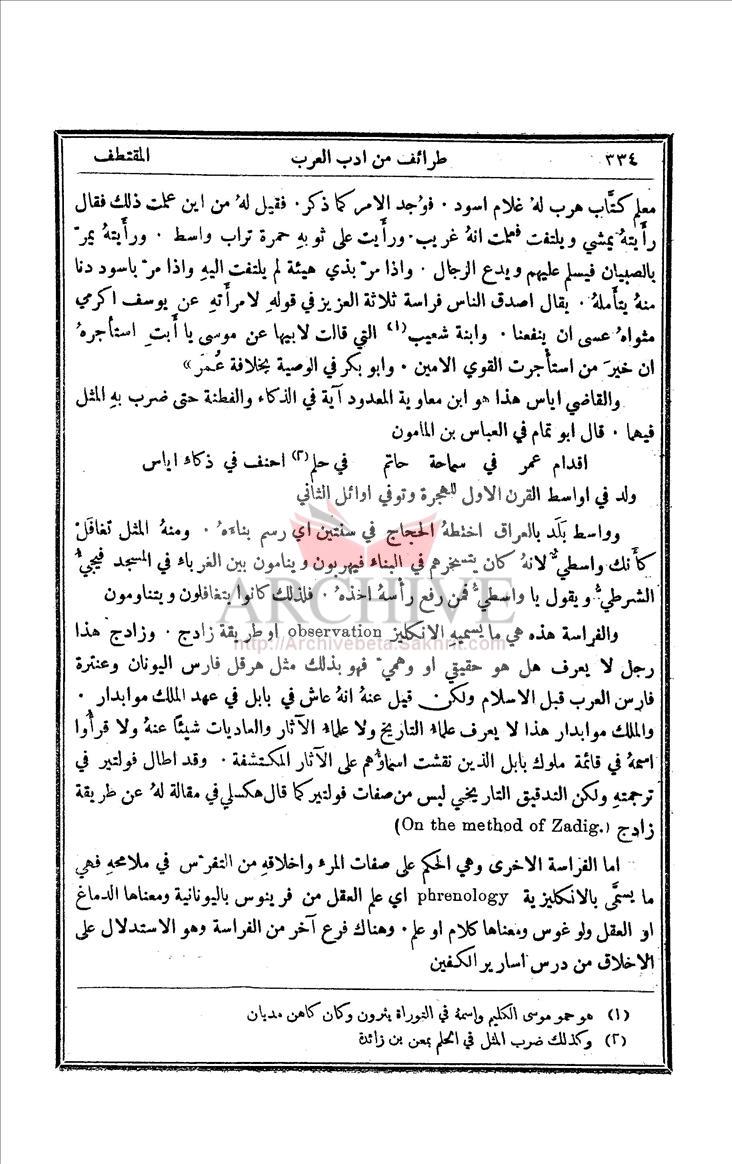 ٣٣٤ طرائف من ادب العرب المقتطف
معلم كتَّاب هرب لهُ غلام اسود . فوُجد الامر كما ذكر. فقيل لهُ من اين علمت ذلك فقال
رأَيتهُ يمشي ويلتفت فعلمت انهُ غريب. ورأَيت على ثوبهِ حمرة تراب واسط . ورأَيتهُ يمرّ
بالصبيان فيسلم عليهم ويدع الرجال . واذا مرّ بذي هيئة لم يلتفت اليهِ واذا مرّ باسود دنا
منهُ يتأملهُ . يقال اصدق الناس فراسة ثلاثة العزيز في قولهِ لامرأَتهِ عن يوسف اكرمي
مثواهُ عسى ان ينفعنا . وابنة شعيب(١) التي قالت لابيها عن موسى يا أَبتِ استأجرهُ
ان خيرَ من استأجرت القوي الامين . وابو بكر في الوصية بخلافة عُمَر »
والقاضي اياس هذا هو ابن معاوية المعدود آية في الذكاء والفطنة حتى ضرب بهِ المثل
فيهما . قال ابو تمام في العباس بن المامون
اقدام عمر في سماحة حاتم في حلم(٢) احنف في ذكاء اياس
ولد في اواسط القرن الاول للهجرة وتوفي اوائل الثاني
وواسط بَلَد بالعراق اختطهُ الحجاج في سنتين اي رسم بناءَهُ . ومنهُ المثل تغافَلْ
كأَنك واسطيٌّ لانهُ كان يتسخرهم في البناء فيهربون وينامون بين الغرباء في المسجد فيجيءُ
الشرطيُّ ويقول يا واسطيُّ فمن رفع رأسهُ اخذهُ . فلذلك كانوا يتغافلون ويتناومون
والفراسة هذه هي ما يسميهِ الانكليز observation او طريقة زادج . وزادج هذا
رجل لا يعرف هل هو حقيقي او وهميّ فهو بذلك مثل هرقل فارس اليونان وعنترة
فارس العرب قبل الاسلام ولكن قيل عنهُ انهُ عاش في بابل في عهد الملك موابدار .
والملك موابدار هذا لا يعرف علماءُ التاريخ ولا علماءُ الآثار والعاديات شيئًا عنهُ ولا قرأُوا
اسمهُ في قائمة ملوك بابل الذين نقشت اسماؤُهم على الآثار المكتشفة . وقد اطال فولتير في
ترجمتهِ ولكن التدقيق التاريخي ليس من صفات فولتير كما قال هكسلي في مقالة لهُ عن طريقة
زادج (On the method of Zadig.)
اما الفراسة الاخرى وهي الحكم على صفات المرء واخلاقهِ من التفرّس في ملامحهِ فهي
ما يسمَّى بالانكليزية phrenology اي علم العقل من فرينوس باليونانية ومعناها الدماغ
او العقل ولوغوس ومعناها كلام او علم. وهناك فرع آخر من الفراسة وهو الاستدلال على
الاخلاق من درس اسارير الكفين
(١) هو حمو موسى الكليم واسمهُ في التوراة يثرون وكان كاهن مديان
(٢) وكذلك ضرب المثل في الحلم بمعن بن زائدة
ARCHIVE
http://Archivebeta.Sakhrit.com